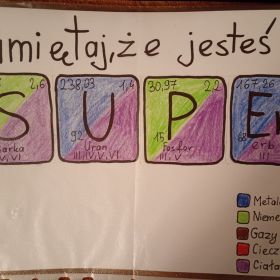 amiętaj, że jesteś
2,6 238,03 1,4 30,97 2,2 167,26
S U P Er
92 15 68
Siarka Uran Fosfor erb
V, VI III, IV, V, VI III, V
Metal
Nieme
Gazy
Ciecz
Ciała